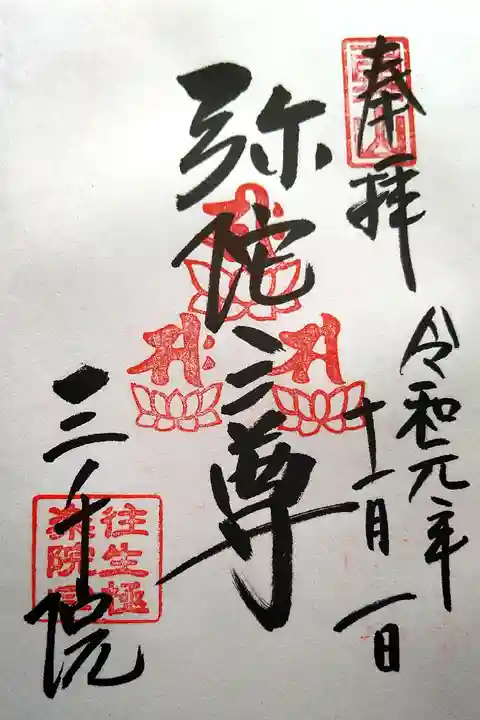 奉拝
令和元年
十一月一日
弥陀三尊
三千院
往生極
楽院